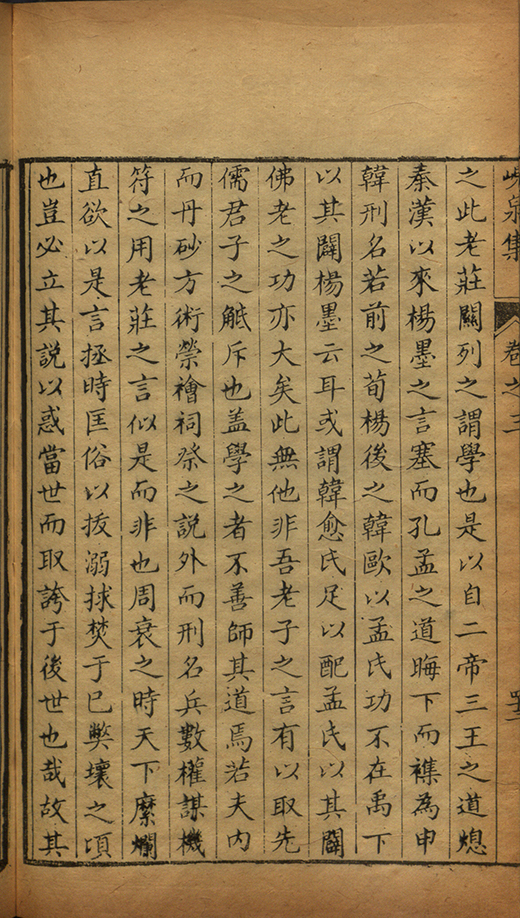 峴泉集
卷之三
之此老莊關列之謂學也是以自二帝三王之道熄
秦漢以來楊墨之言塞而孔孟之道晦下而襍為申
韓刑名若前之荀楊後之韓歐以孟氏功不在禹下
以其闢楊墨云耳或謂韓愈氏足以配孟氏以其闢
佛老之功亦大矣此無他非吾老子之言有以取先
儒君子之觝斥也盖學之者不善師其道焉若夫内
而丹砂方術禜禬祠祭之說外而刑名兵數權謀機
符之用老莊之言似是而非也周衰之時天下糜爛
直欲以是言拯時匡俗以拔溺捄焚于巳獘壞之頃
也豈必立其説以惑當世而取誇于後世也哉故其